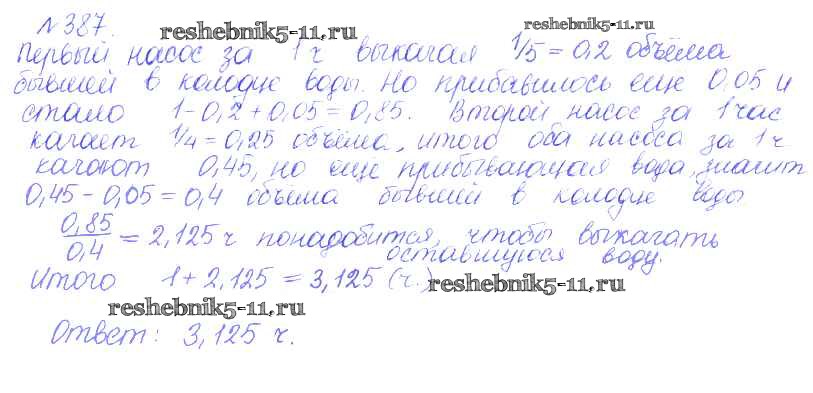 №387. reshebnik5-11.ru reshebnik5-11.ru
Первый насос за 1 ч выкачал 1/5=0,2 объёма
бывшей в колодце воды. Но прибавилось ещё 0,05 и
стало 1-0,2+0,05=0,85. Второй насос за 1 час
качает 1/4=0,25 объёма, итого оба насоса за 1 ч
качают 0,45, но ещё прибывающая вода, значит
0,45-0,05=0,4 объёма бывшей в колодце воды.
0,85/0,4=2,125 ч понадобится, чтобы выкачать
оставшуюся воду.
Итого 1+2,125=3,125 (ч.) reshebnik5-11.ru
reshebnik5-11.ru
Ответ: 3,125 ч.